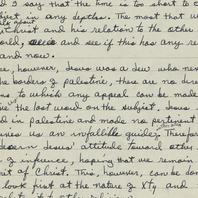 d I say that the time is too short to c
ject in any depths. The most that w
talk about
Christ and his relation to the other
orld, and see if this has any re
and now.
ever, Jesus was a Jew who neve
he borders of palestine, there are no dire
s to which any appeal can be made
the last word on the subject. Jesus
d in palestine and made no pertinent
nies us an infallible guide. Therefor
dern Jesus' attitude toward other
of inference, hoping that we remain
rit of Christ. This, however, can be do
look first at the nature of Xty and